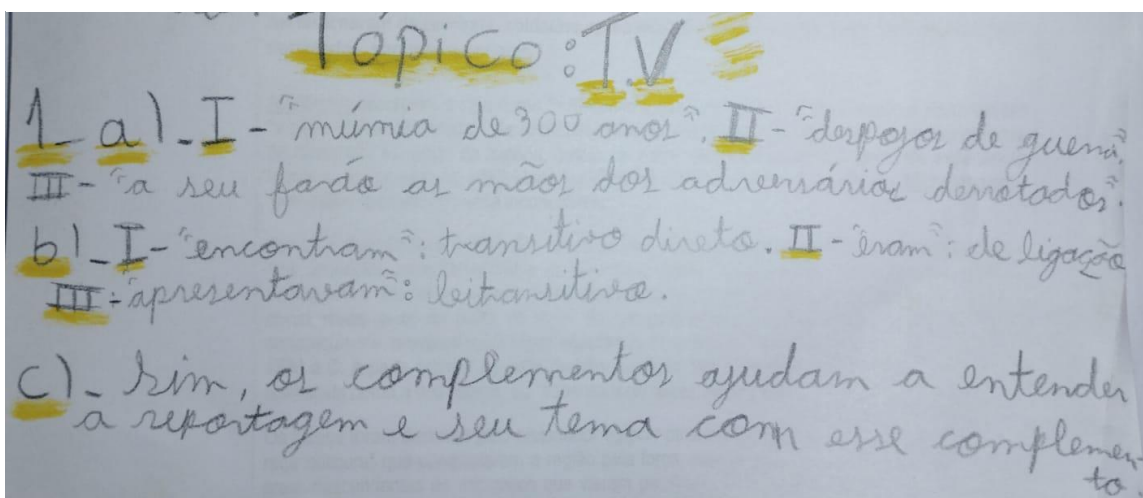 Tópico: T.V
1_ a)_ I - "múmia de 300 anos". II - "despojos de guerra".
III - "a seu faraó as mãos dos adversários derrotados".
b)_ I - "encontram": transitivo direto. II - "eram": de ligação
III - "apresentavam": bitransitivo.
c)_ Sim, os complementos ajudam a entender
a reportagem e seu tema com esse complemen-
to